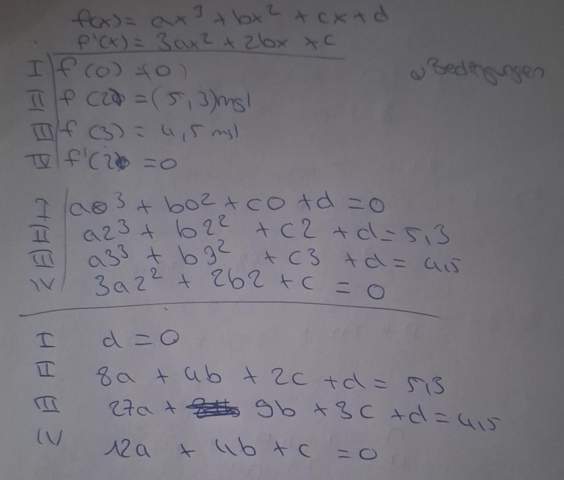 f(x) = ax³ + bx² + cx + d
f'(x) = 3ax² + 2bx + c
I f(0) = 0) → Bedingungen
II f(2) = (5,3) mg/l
III f(3) = 4,5 mg/l
IV f'(2) = 0
I a0³ + b0² + c0 + d = 0
II a2³ + b2² + c2 + d = 5,3
III a3³ + b3² + c3 + d = 4,5
IV 3a2² + 2b2 + c = 0
I d = 0
II 8a + 4b + 2c + d = 5,3
III 27a + 9b + 3c + d = 4,5
IV 12a + 4b + c = 0